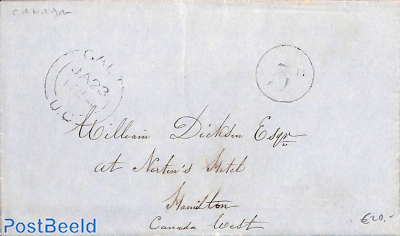 CANADA
GALT
JA 23
U.C.
3
William Dickson Esqr
at Norton's Hotel
Hamilton
Canada West
€20,-
PostBeeld